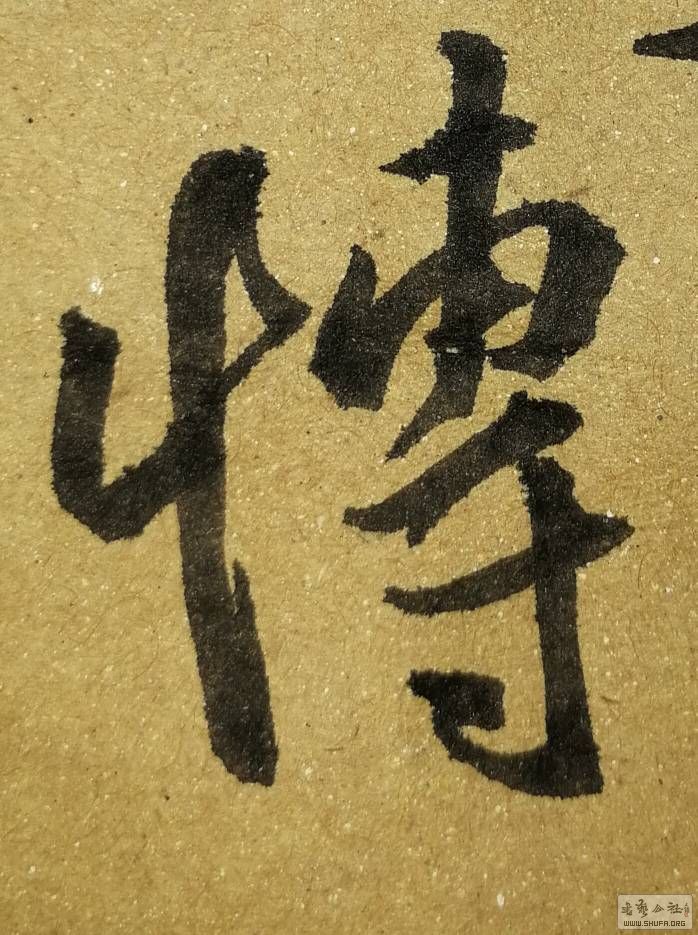 慱
書藝公社
WWW.SHUFA.ORG